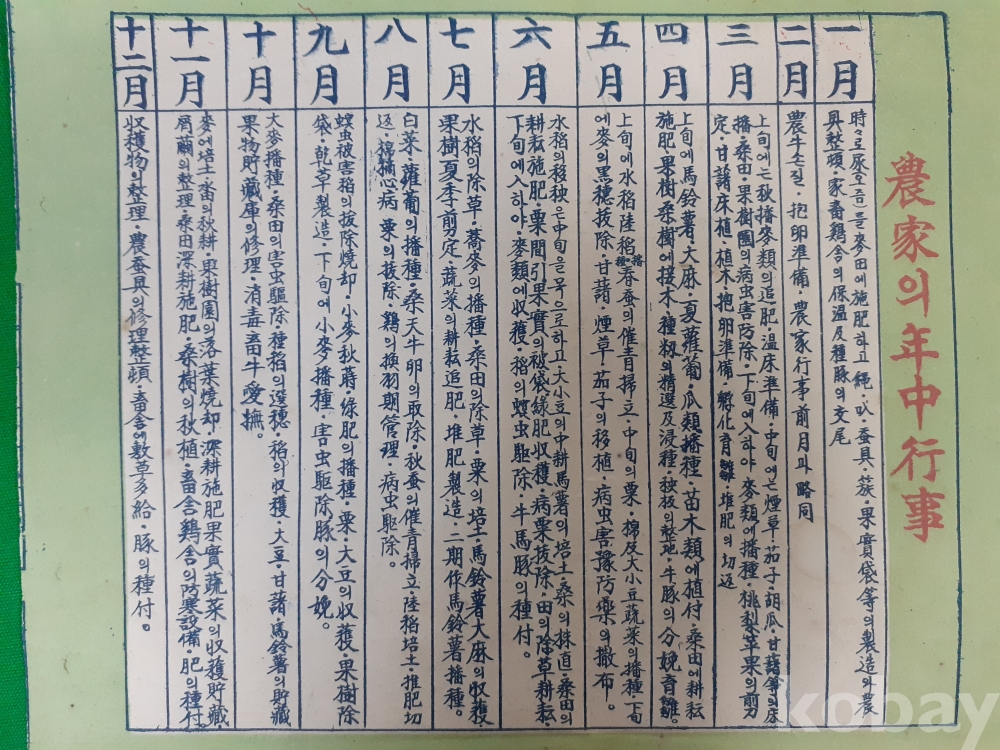 農家의年中行事
一月
時々로尿(오좀)를麥田에施肥하고繩·叺·蚕具·簇·果實袋等의製造와農
具整頓·家畜鷄舍의保温及種豚의交尾
二月
農牛손질·抱卵準備·農家行事前月과略同
三月
上旬에는秋播麥類의追肥·温床準備·中旬에는煙草·茄子·胡瓜·甘藷等의床
播·桑田·果樹園의病虫害防除·下旬에入하야麥類에播種·桃梨苹果의剪
定·甘藷床植·植木·抱卵準備·孵化育雛·堆肥의切返
四月
上旬에馬鈴著·大麻·夏蘿葍·瓜類播種·苗木類에植付·桑田에耕耘
施肥·果樹桑樹에接木·種籾의精選及浸種秧板의整地·牛豚의分娩育雛。
五月
上旬에水稻陸稻播種·春蚕의催青掃立·中旬의粟·棉及大小豆蔬菜의播種·下旬
에麥의黒穂拔除·甘藷·煙草茄子의移植·病虫害豫防藥의撒布。
六月
水稻의移秧은中旬을목으로하고大小豆의中耕馬薯의培土·桑의株直·桑田의
耕耘施肥·粟間引果實의被袋綠肥収獲·病粟拔除·田의除草耕耘
下旬에入하야·麥類에收獲·稻의螟虫駆除·牛馬豚의種付。
七月
水稻의除草·蕎麥의播種·桑田의除草·粟의培土馬鈴薯大麻의収獲
果樹夏季剪定·蔬菜의耕耘追肥·堆肥製造·二期作馬鈴薯播種。
八月
白菜·蘿葍의播種·桑天牛卵의取除·秋蚕의催青掃立·陸稻培土·堆肥切
返·棉摘心病 粟의拔除·鷄의換羽期管理·病虫駆除。
九月
螟虫被害稻의拔除焼却·小麥秋蒔·綠肥의播種·粟·大豆의収獲·果樹除
袋·乾草製造·下旬에小麥播種·害虫駆除豚의分娩。
十月
大麥播種·桑田의害虫驅除·種稻의選穂·稻의収獲·大豆·甘藷·馬鈴薯의貯藏
果物貯藏庫의修理·消毒畜牛愛撫。
十一月
麥에培土·畓의秋耕·果樹園의落葉焼却·深耕施肥果實蔬菜의収獲貯藏
屑繭의整理·桑田深耕施肥·桑樹의秋植·畜舍鷄舍의防寒設備·肥의種付
十二月
収獲物의整理·農蚕具의修理整頓·畜舍에敷草多給·豚의種付。
kobay